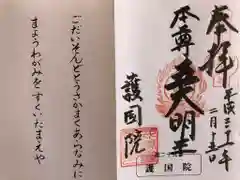 奉拝
平成
二月
本尊五大明王
護国院
護国院
ごだいそんどとうさかまくあらなみに
まようわがみをすくいたまえや